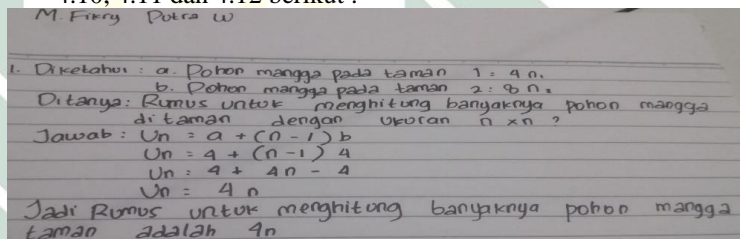 4.10, 4.11 dan 4.12 berikut :
M. Fikry Putra W
1. Diketahui : a. Pohon mangga pada taman 1 : 4 n.
b. Pohon mangga pada taman 2 : 8 n.
Ditanya : Rumus untuk menghitung banyaknya pohon mangga
di taman dengan ukuran n x n ?
Jawab : Un = a + (n - 1) b
Un = 4 + (n - 1) 4
Un = 4 + 4n - 4
Un = 4n
Jadi Rumus untuk menghitung banyaknya pohon mangga
taman adalah 4n